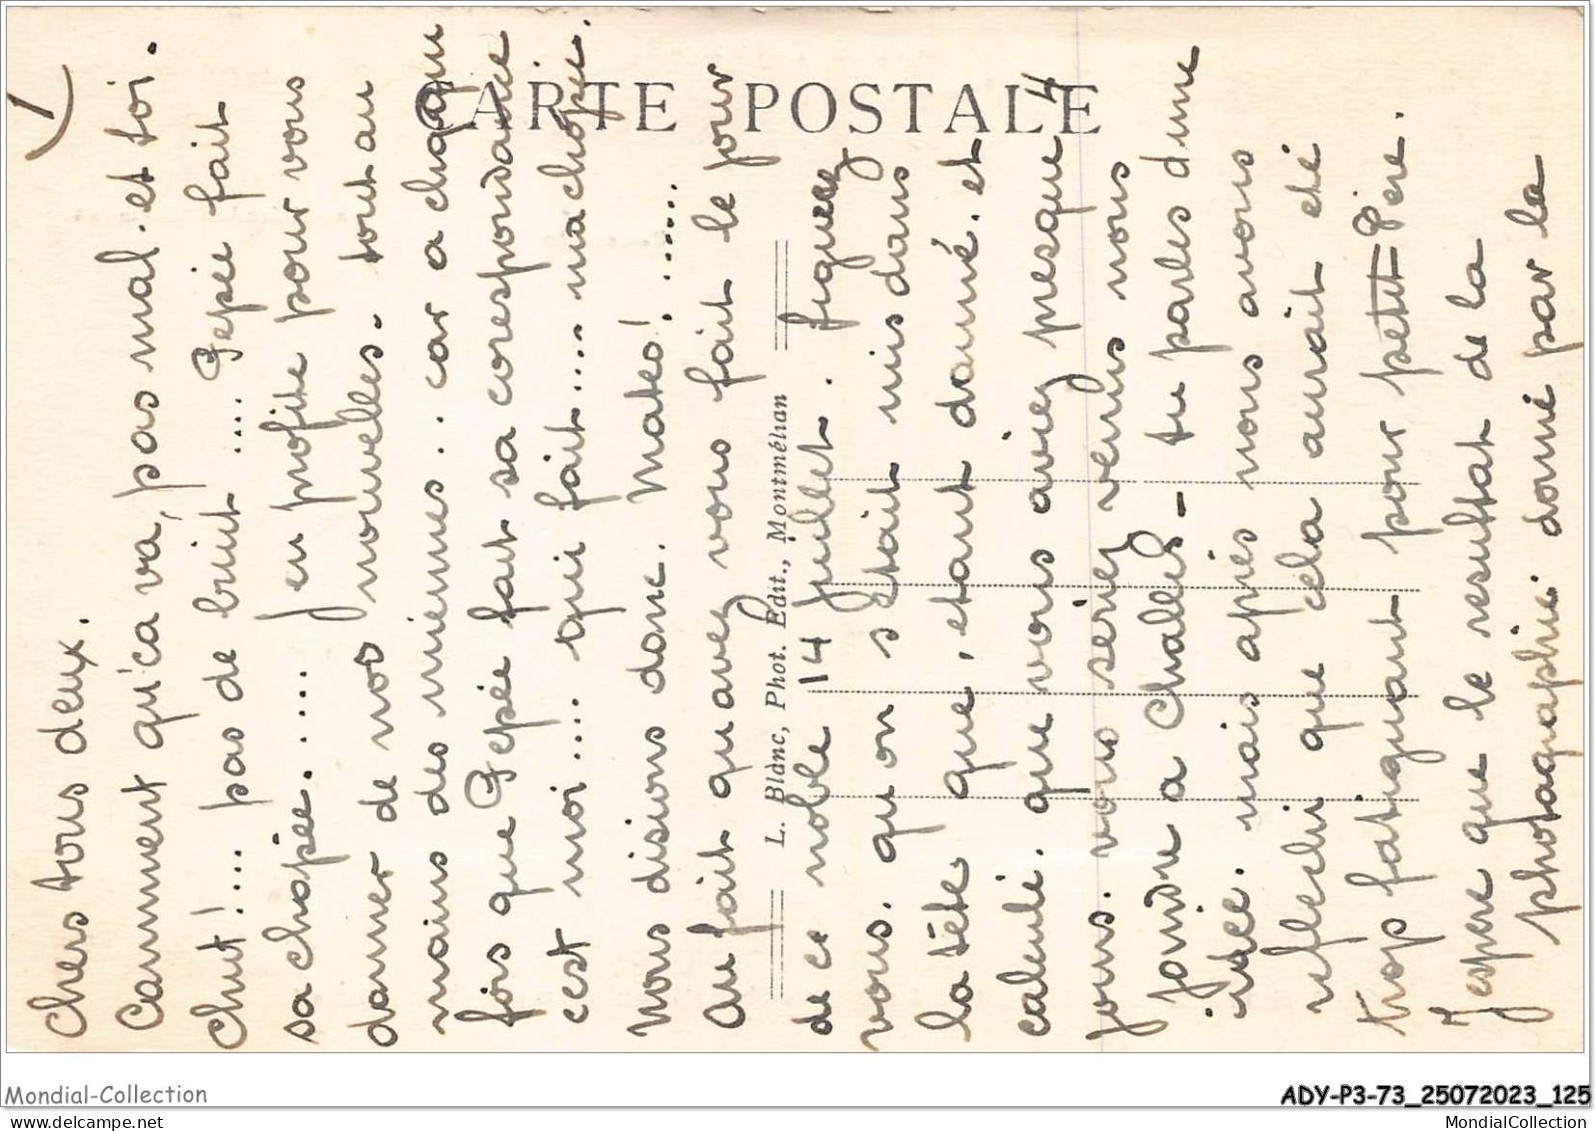 1)
Chers tous deux.
Comment qu'ca va, pas mal. et toi.
Chut!... pas de bruit .... Pepée fait
sa chopée..... J en profite pour vous
donner de nos nouvelles. tout au
moins des miennes.. car a chaque
fois que Pepée fait sa corespondance
c est moi.... qui fait.... ma chopée.
Nous disions donc. Mateo!......
Au fait qu avez vous fait le jour
de ce noble 14 juillet. figurez
vous. qu on s etait mis dans
la tête que, etant donné. et
calculé. que vous aviez presque 4
jours. vous seriez venus nous
joindre a Challes - tu parles d une
idée. mais apres nous avons
reflechi que cela aurait eté
trop fatiguant pour petit-Père.
J espere que le resultat de la
photographie donné par le
CARTE POSTALE
L. Blanc, Phot. Edit., Montmélian
Mondial-Collection
ADY-P3-73_25072023_125
www.delcampe.net
MondialCollection